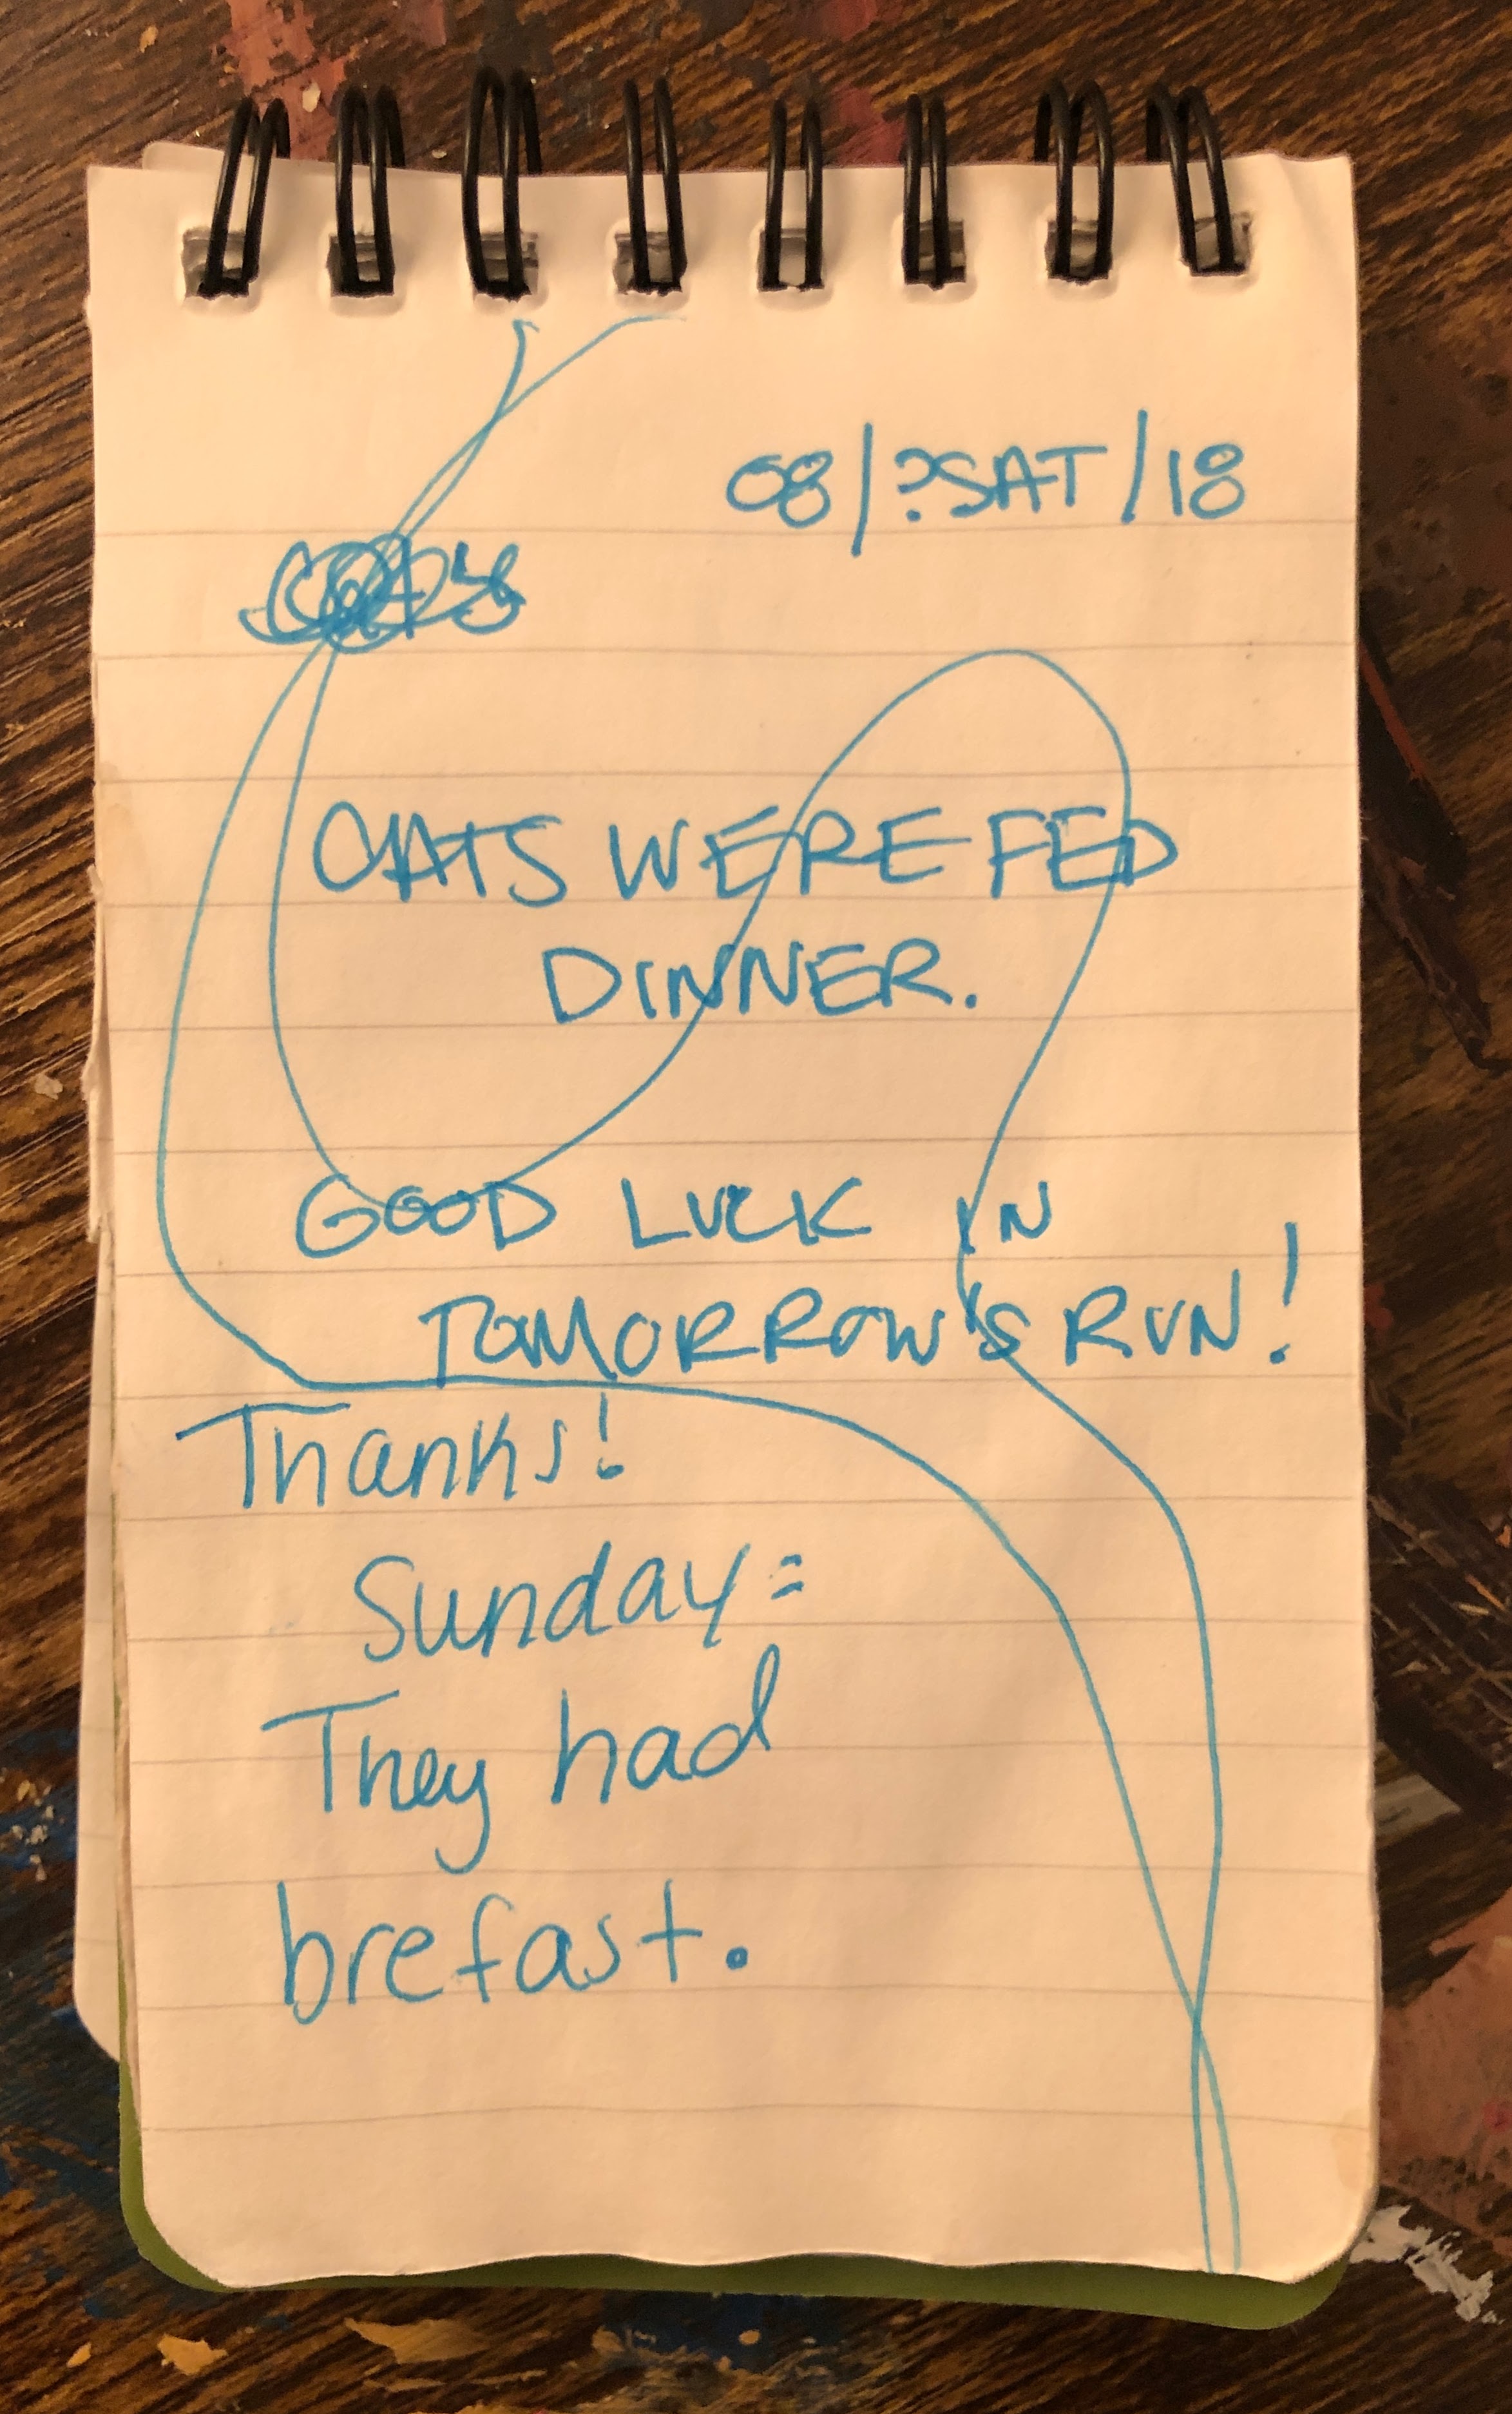 08/?SAT/18
CATS WERE FED
DINNER.
GOOD LUCK IN
TOMORROW'S RUN!
Thanks!
Sunday=
They had
brefast.